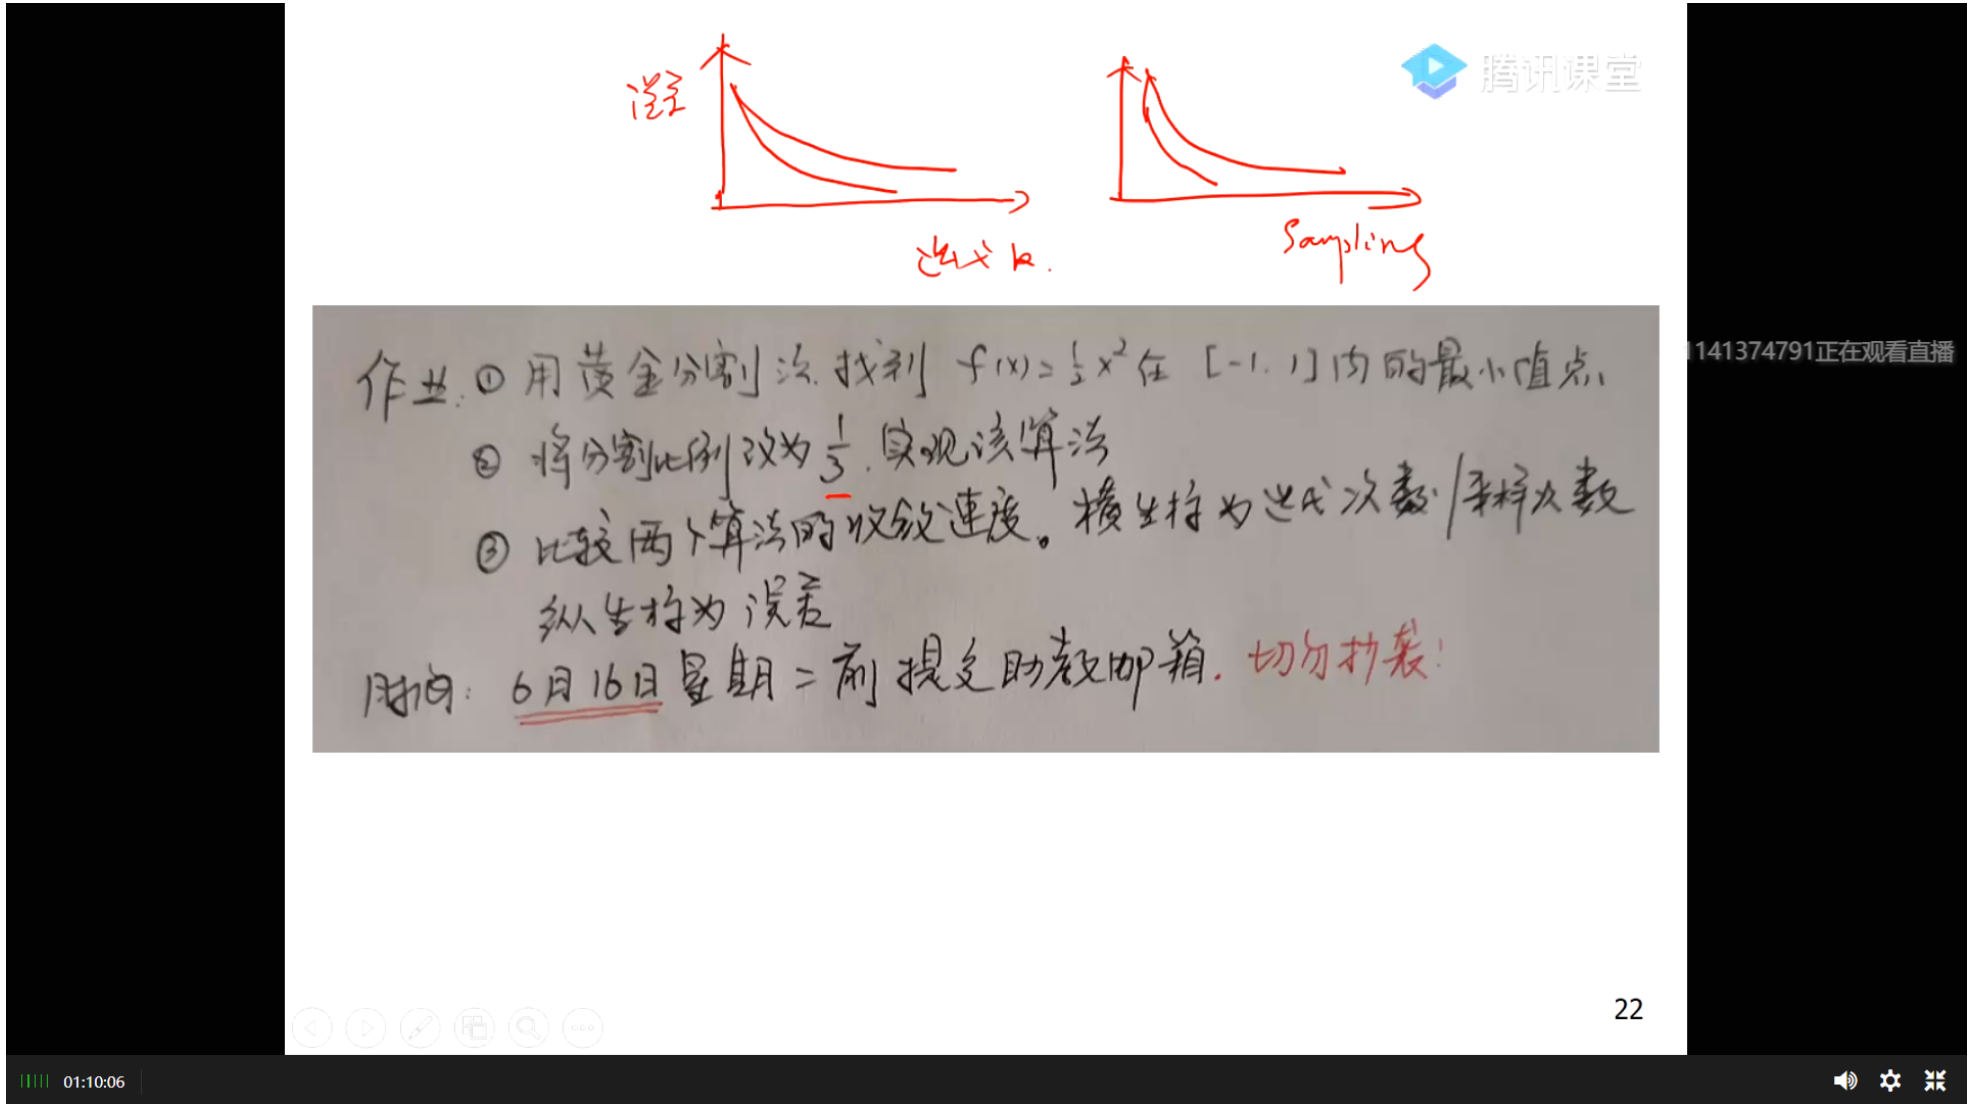 误差
腾讯课堂
迭代 k.
Sampling
1141374791正在观看直播
作业: ① 用黄金分割法找到 f(x)=½x² 在 [-1, 1] 内的最小值点
② 将分割比例改为 1/3, 实现该算法
③ 比较两个算法的收敛速度。横坐标为迭代次数/采样次数
纵坐标为误差
时间: 6月16日星期二前提交助教邮箱. 切勿抄袭!
22
01:10:06